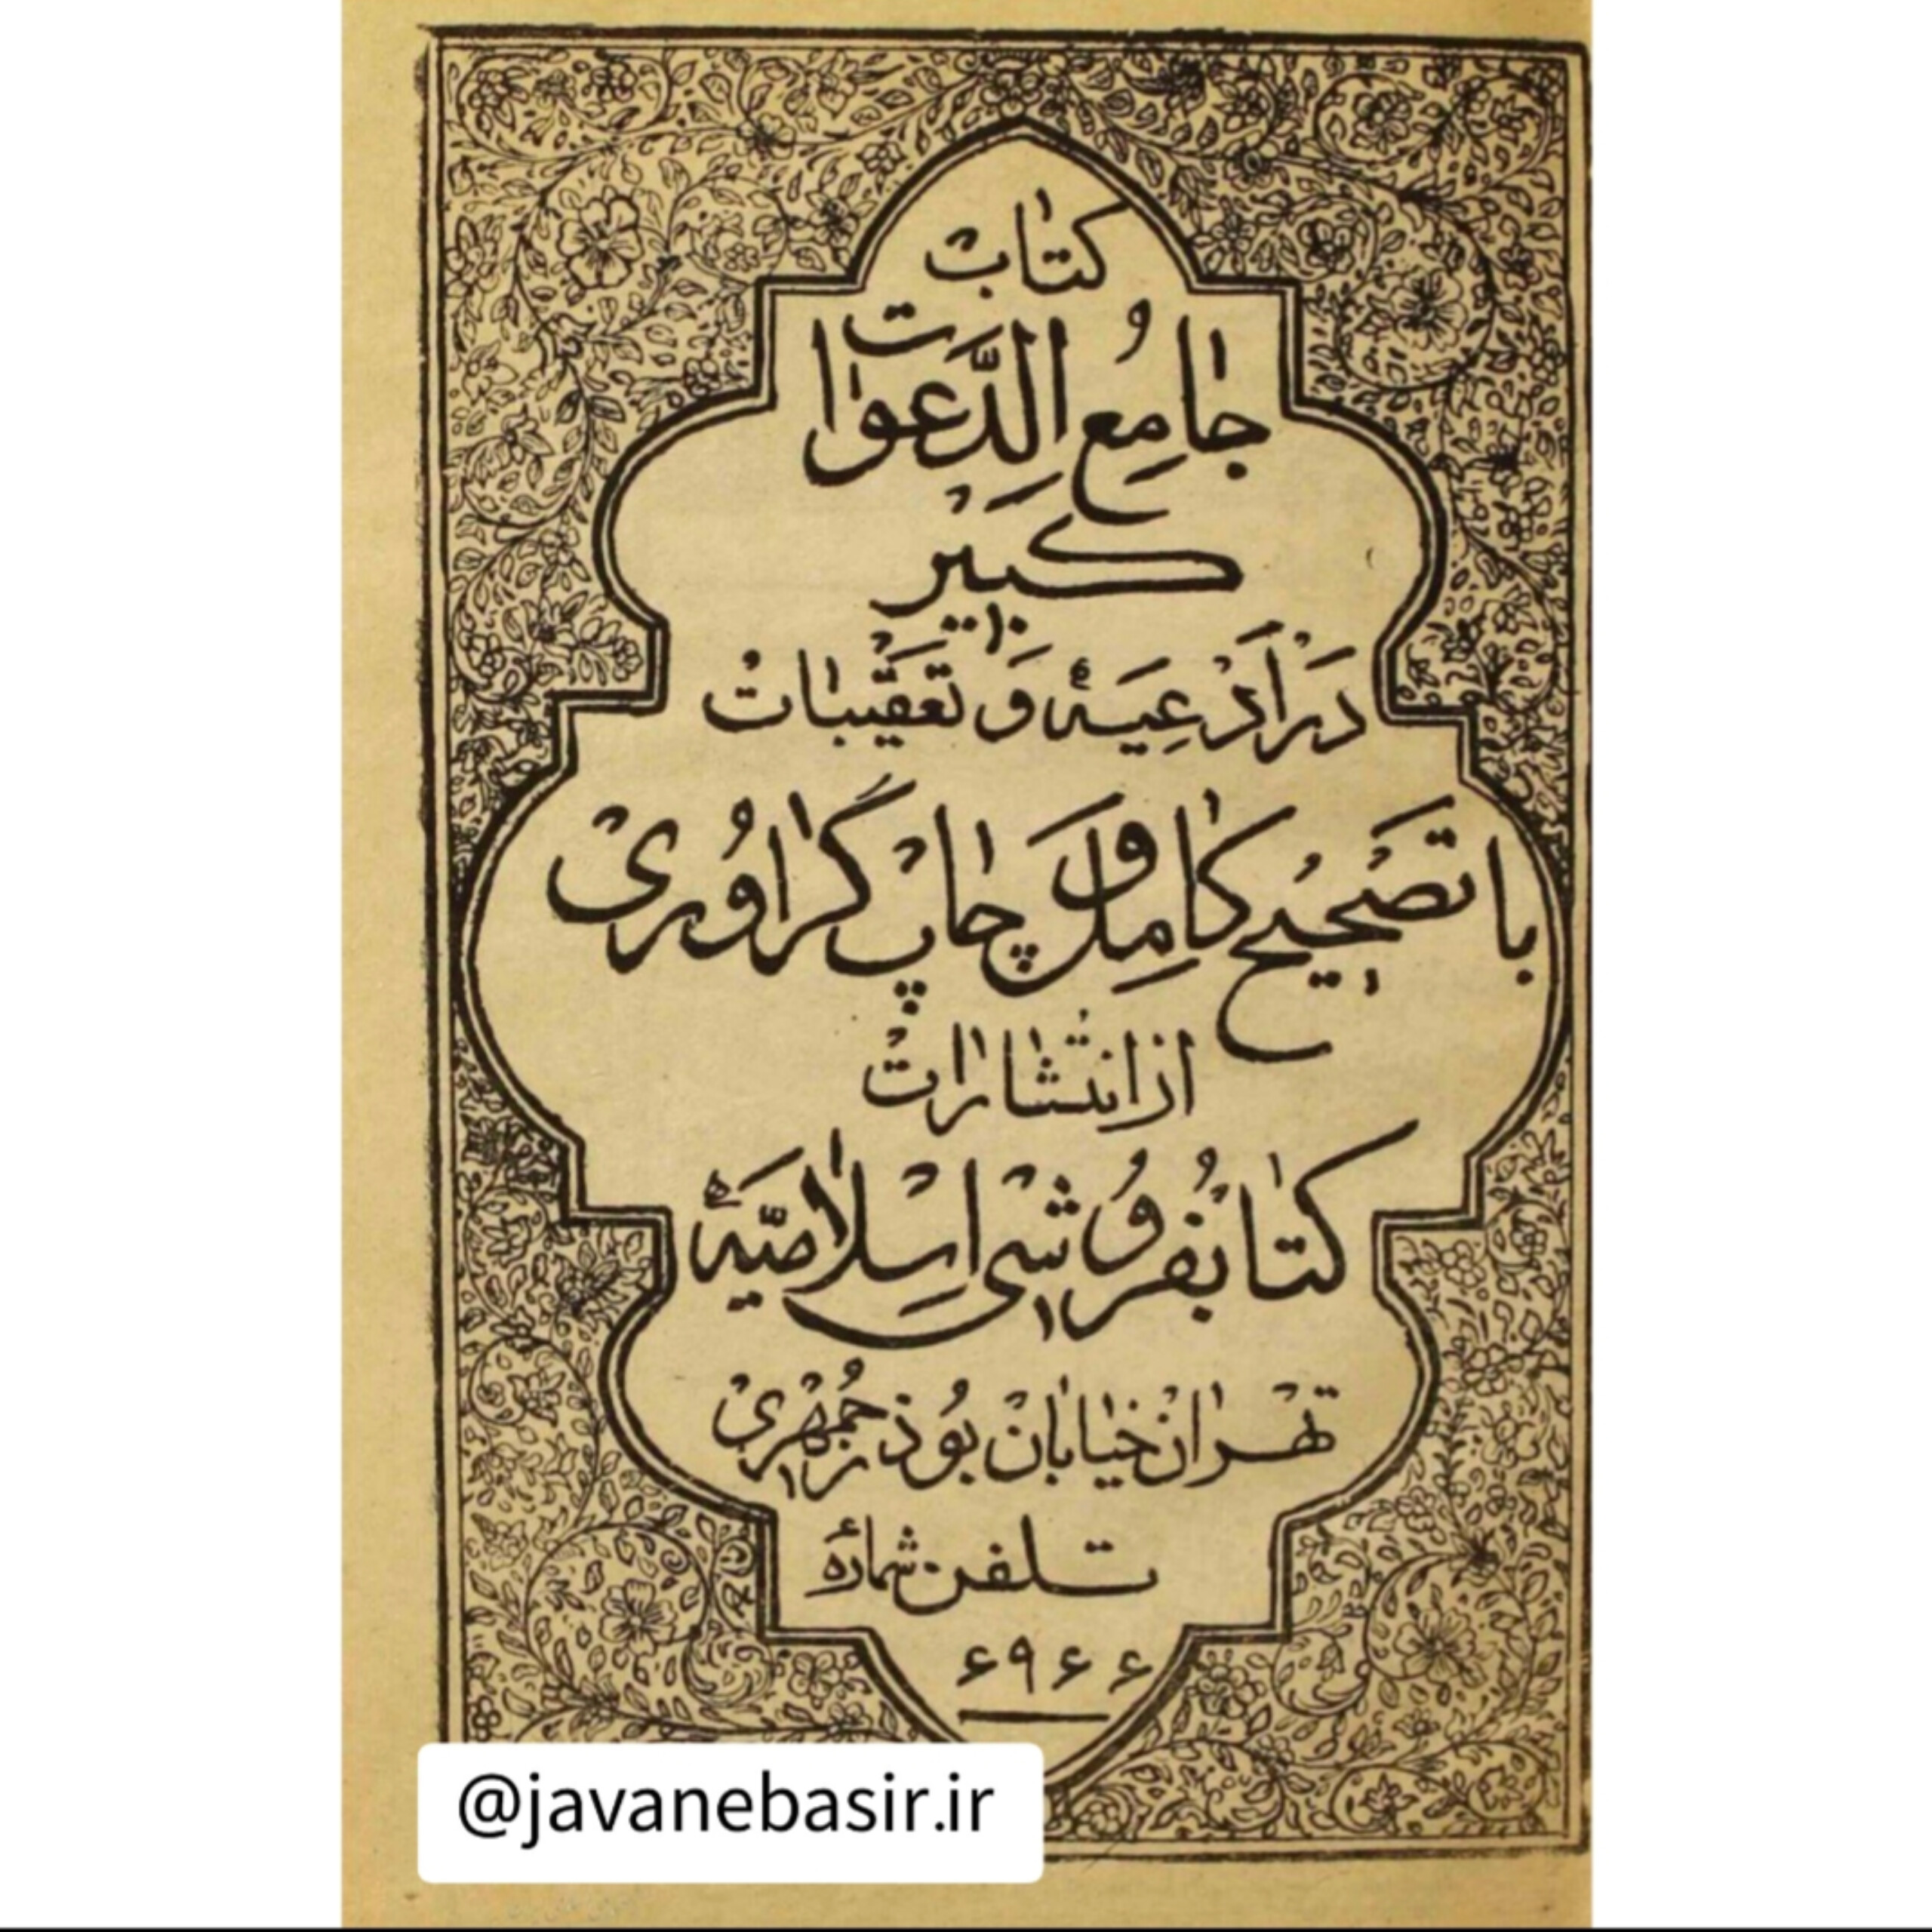 کتاب
جامع الدَّعوات
کبیر
در ادعیهٔ و تعقیبات
با تصحیح کامل و چاپ گراوری
از انتشارات
کتابفروشی اسلامیّهٔ
تهران خیابان بوذرجمهری
تلفن شمارهٔ
۶۹۶۶
@javanebasir.ir